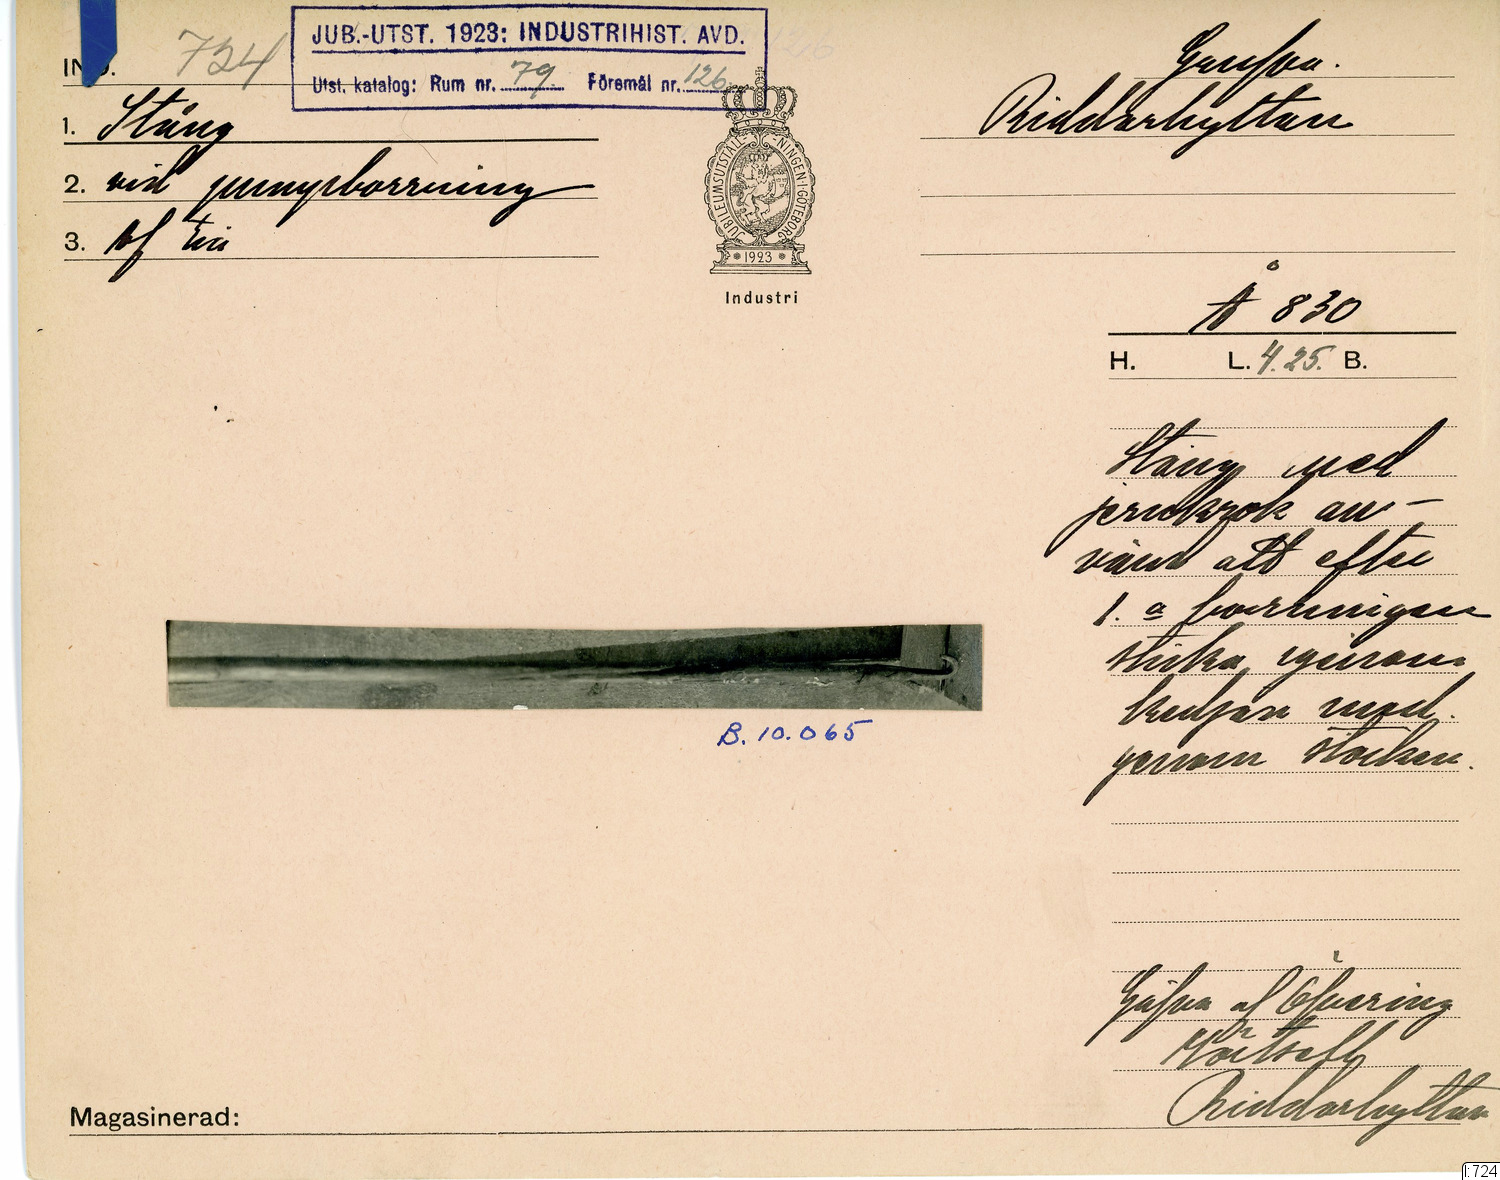 JUB.-UTST. 1923: INDUSTRIHIST. AVD.
Utst. katalog: Rum nr. 79 Föremål nr. 126
724
1. Stång
2. vid pumpborrning
3. af trä
JUBILEUMSUTSTÄLLNINGEN I GÖTEBORG
1923
Industri
Riddarhyttan
Å 830
H. L. 4.25. B.
Stång med
jernkrok an-
vänd att efter
1.a borrningen
sticka igenom
kedjan med
genom stocken.
B. 10.065
Gåfva af
Riddarhyttan
Magasinerad:
I:724